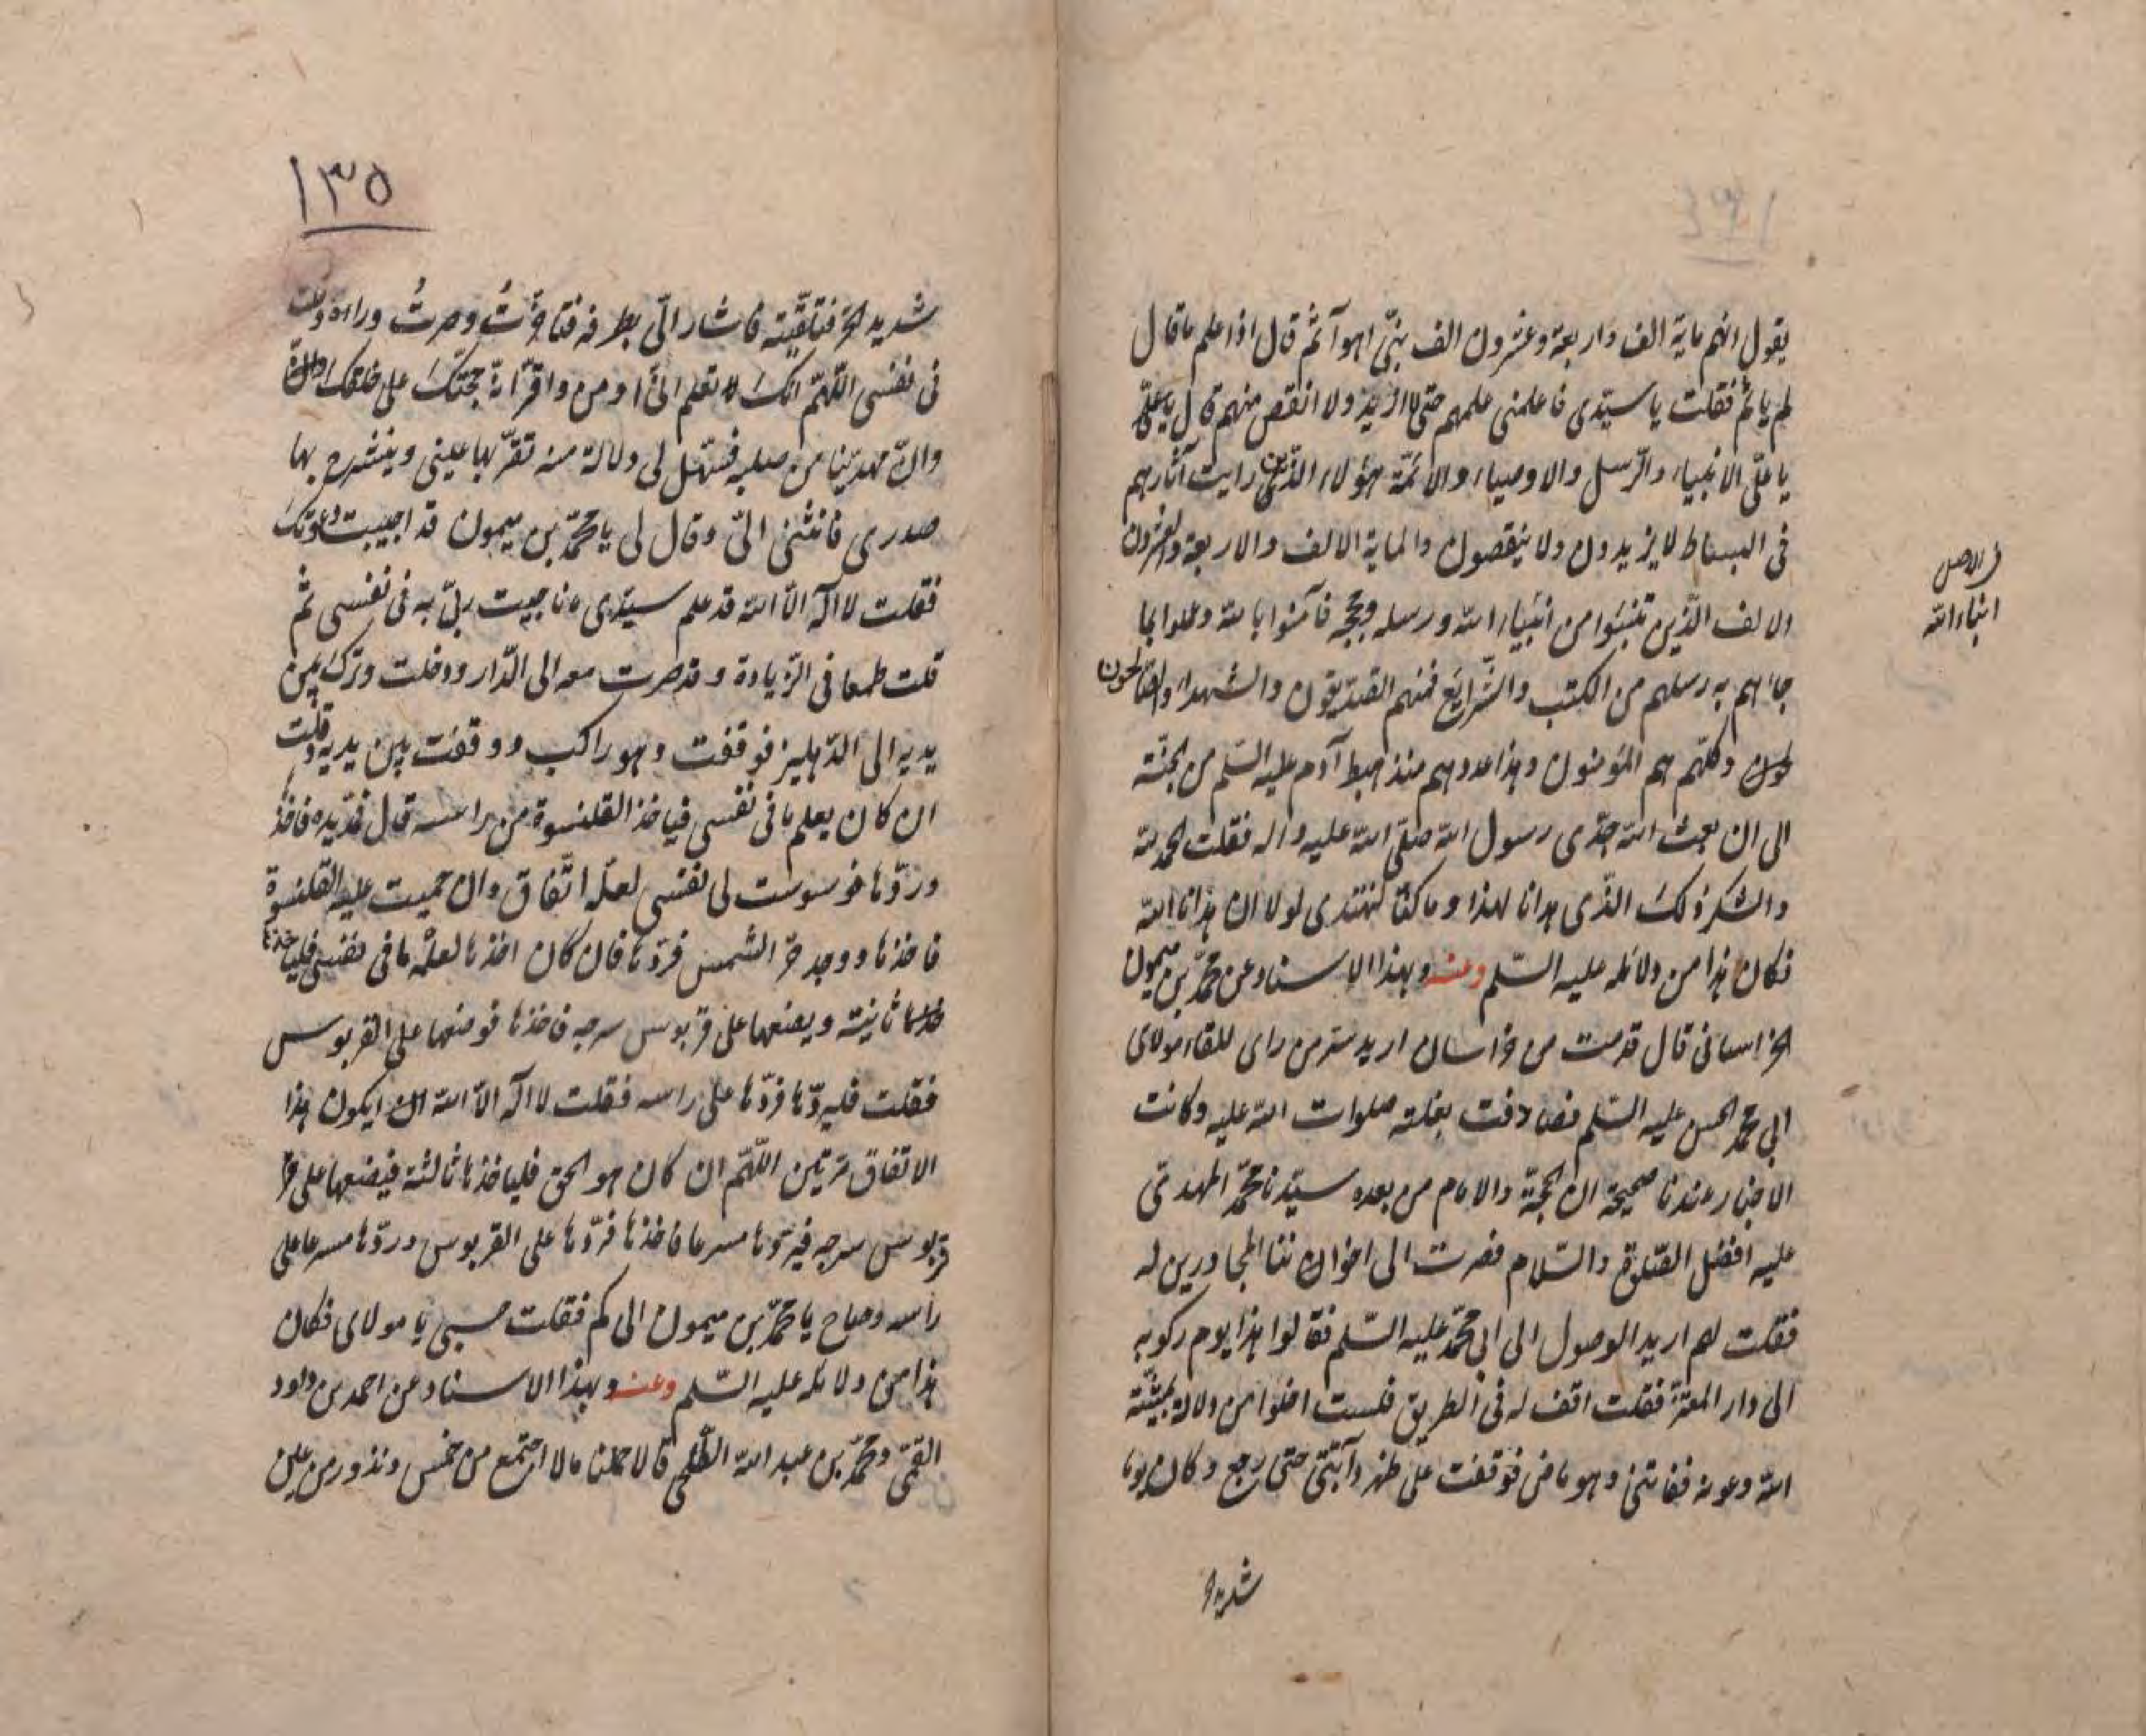 يقول انهم ماية الف واربعة وعشرون الف نبيّ اهوآثم قال اذا علم ما قال
لم ياثم فقلت يا سيّدى فاعلمنى علمهم حتى لا ازيد ولا انقص منهم قال يا علىّ
يا علىّ الانبياء والرّسل والاوصياء والائمّة هؤلاء الذّين رايت آثارهم
فى البساط لا يزيدون ولا ينقصون والماية الالف والاربعة والعشرون
الالف الذّين تنبّئوا من انبياء الله ورسله وحججه فآمنوا بالله وعملوا بما
جاءهم به رسلهم من الكتب والشّرايع فمنهم الصّدّيقون والشهداء والصّالحون
وكلّهم هم المؤمنون وهذا عددهم منذ هبط آدم عليه السّلم من الجنّة
الى ان بعث الله جدّى رسول الله صلّى الله عليه واله فقلت الحمد لله
والشكر لذلك الذّى هدانا لهذا وما كنّا لنهتدى لولا ان هدانا الله
فكان هذا من دلائله عليه السّلم وعنه وبهذا الاسناد عن محمّد بن ميمون
الخراسانى قال قدمت من خراسان اريد سرّ من راى للقاء مولاى
ابى محمّد الحسن عليه السّلم فصادفت بغلته صلوات الله عليه وكانت
الاخبار عندنا صحيحة ان الحجّة والامام من بعده سيّدنا محمّد المهدىّ
عليه افضل الصّلوة والسّلام فصرت الى اخواننا المجاورين له
فقلت لهم اريد الوصول الى ابى محمّد عليه السّلم فقالوا هذا يوم ركوبه
الى دار المعتزّ فقلت اقف له فى الطريق فلست اخلوا من دلالة بمشيّة
الله وعونه ففاتنى وهو ماض فوقفت على ظهر دآبّتى حتى رجع وكان يوما
شديد
فى الاصل
انباء الله
١٣٥
شديد الحرّ فتلقّيته فاشار الىّ بطرفه فتاخّرتُ وصرتُ وراءه وقلت
فى نفسى اللّهمّ انك تعلم انىّ اومن واقرّ انهّ حجّتك على خلقك
وانّ مهديّنا من صلبه فسهّل لى دلالة منه تقرّ بها عينى وينشرح بها
صدرى فانثنى الىّ وقال لى يا محمّد بن ميمون قد اجيبت دعوتك
فقلت لا اله الاّ الله قد علم سيّدى ما ناجيت ربّى به فى نفسى ثم
قلت طمعا فى الزّيادة وقد صرت معه الى الدّار ودخلت وتركنى بين
يديه الى الدّهليز فوقفت وهو راكب ووقفت بين يديه وقلت
ان كان يعلم ما فى نفسى فياخذ القلنسوة من راسه قال فمدّ يده فاخذ
وردّها فوسوست لى نفسى لعلّه اتّفاق وان حميت عليه القلنسوة
فاخذها ووجد حرّ الشمس فردّها فان كان اخذها لعلمه ما فى نفسى فلياخذها
ثانية ويضعها على قربوس سرجه فاخذها فوضعها على القربوس
فقلت فليردّها فردّها على راسه فقلت لا اله الاّ الله ايكون هذا
الاتفاق مرّتين اللّهمّ ان كان هو الحق فلياخذها ثالثة فيضعها على
قربوس سرجه فيردّها مسرعا فاخذها فردّها على القربوس وردّها مسرعا على
راسه وصاح يا محمّد بن ميمون الى كم فقلت حسبى يا مولاى فكان
هذا من دلائله عليه السّلم وعنه وبهذا الاسناد عن احمد بن داود
القمّى ومحمّد بن عبد الله الطّلحى قالا حملنا مالا اجتمع من خمس ونذور من عين